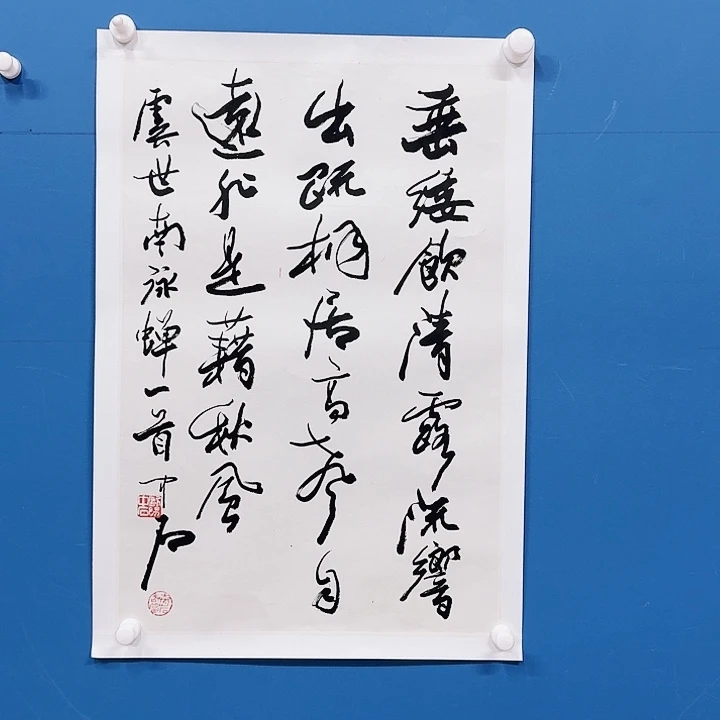 垂緌飲清露流響
出疏桐居高聲自
遠非是藉秋風
虞世南詠蟬一首 中石